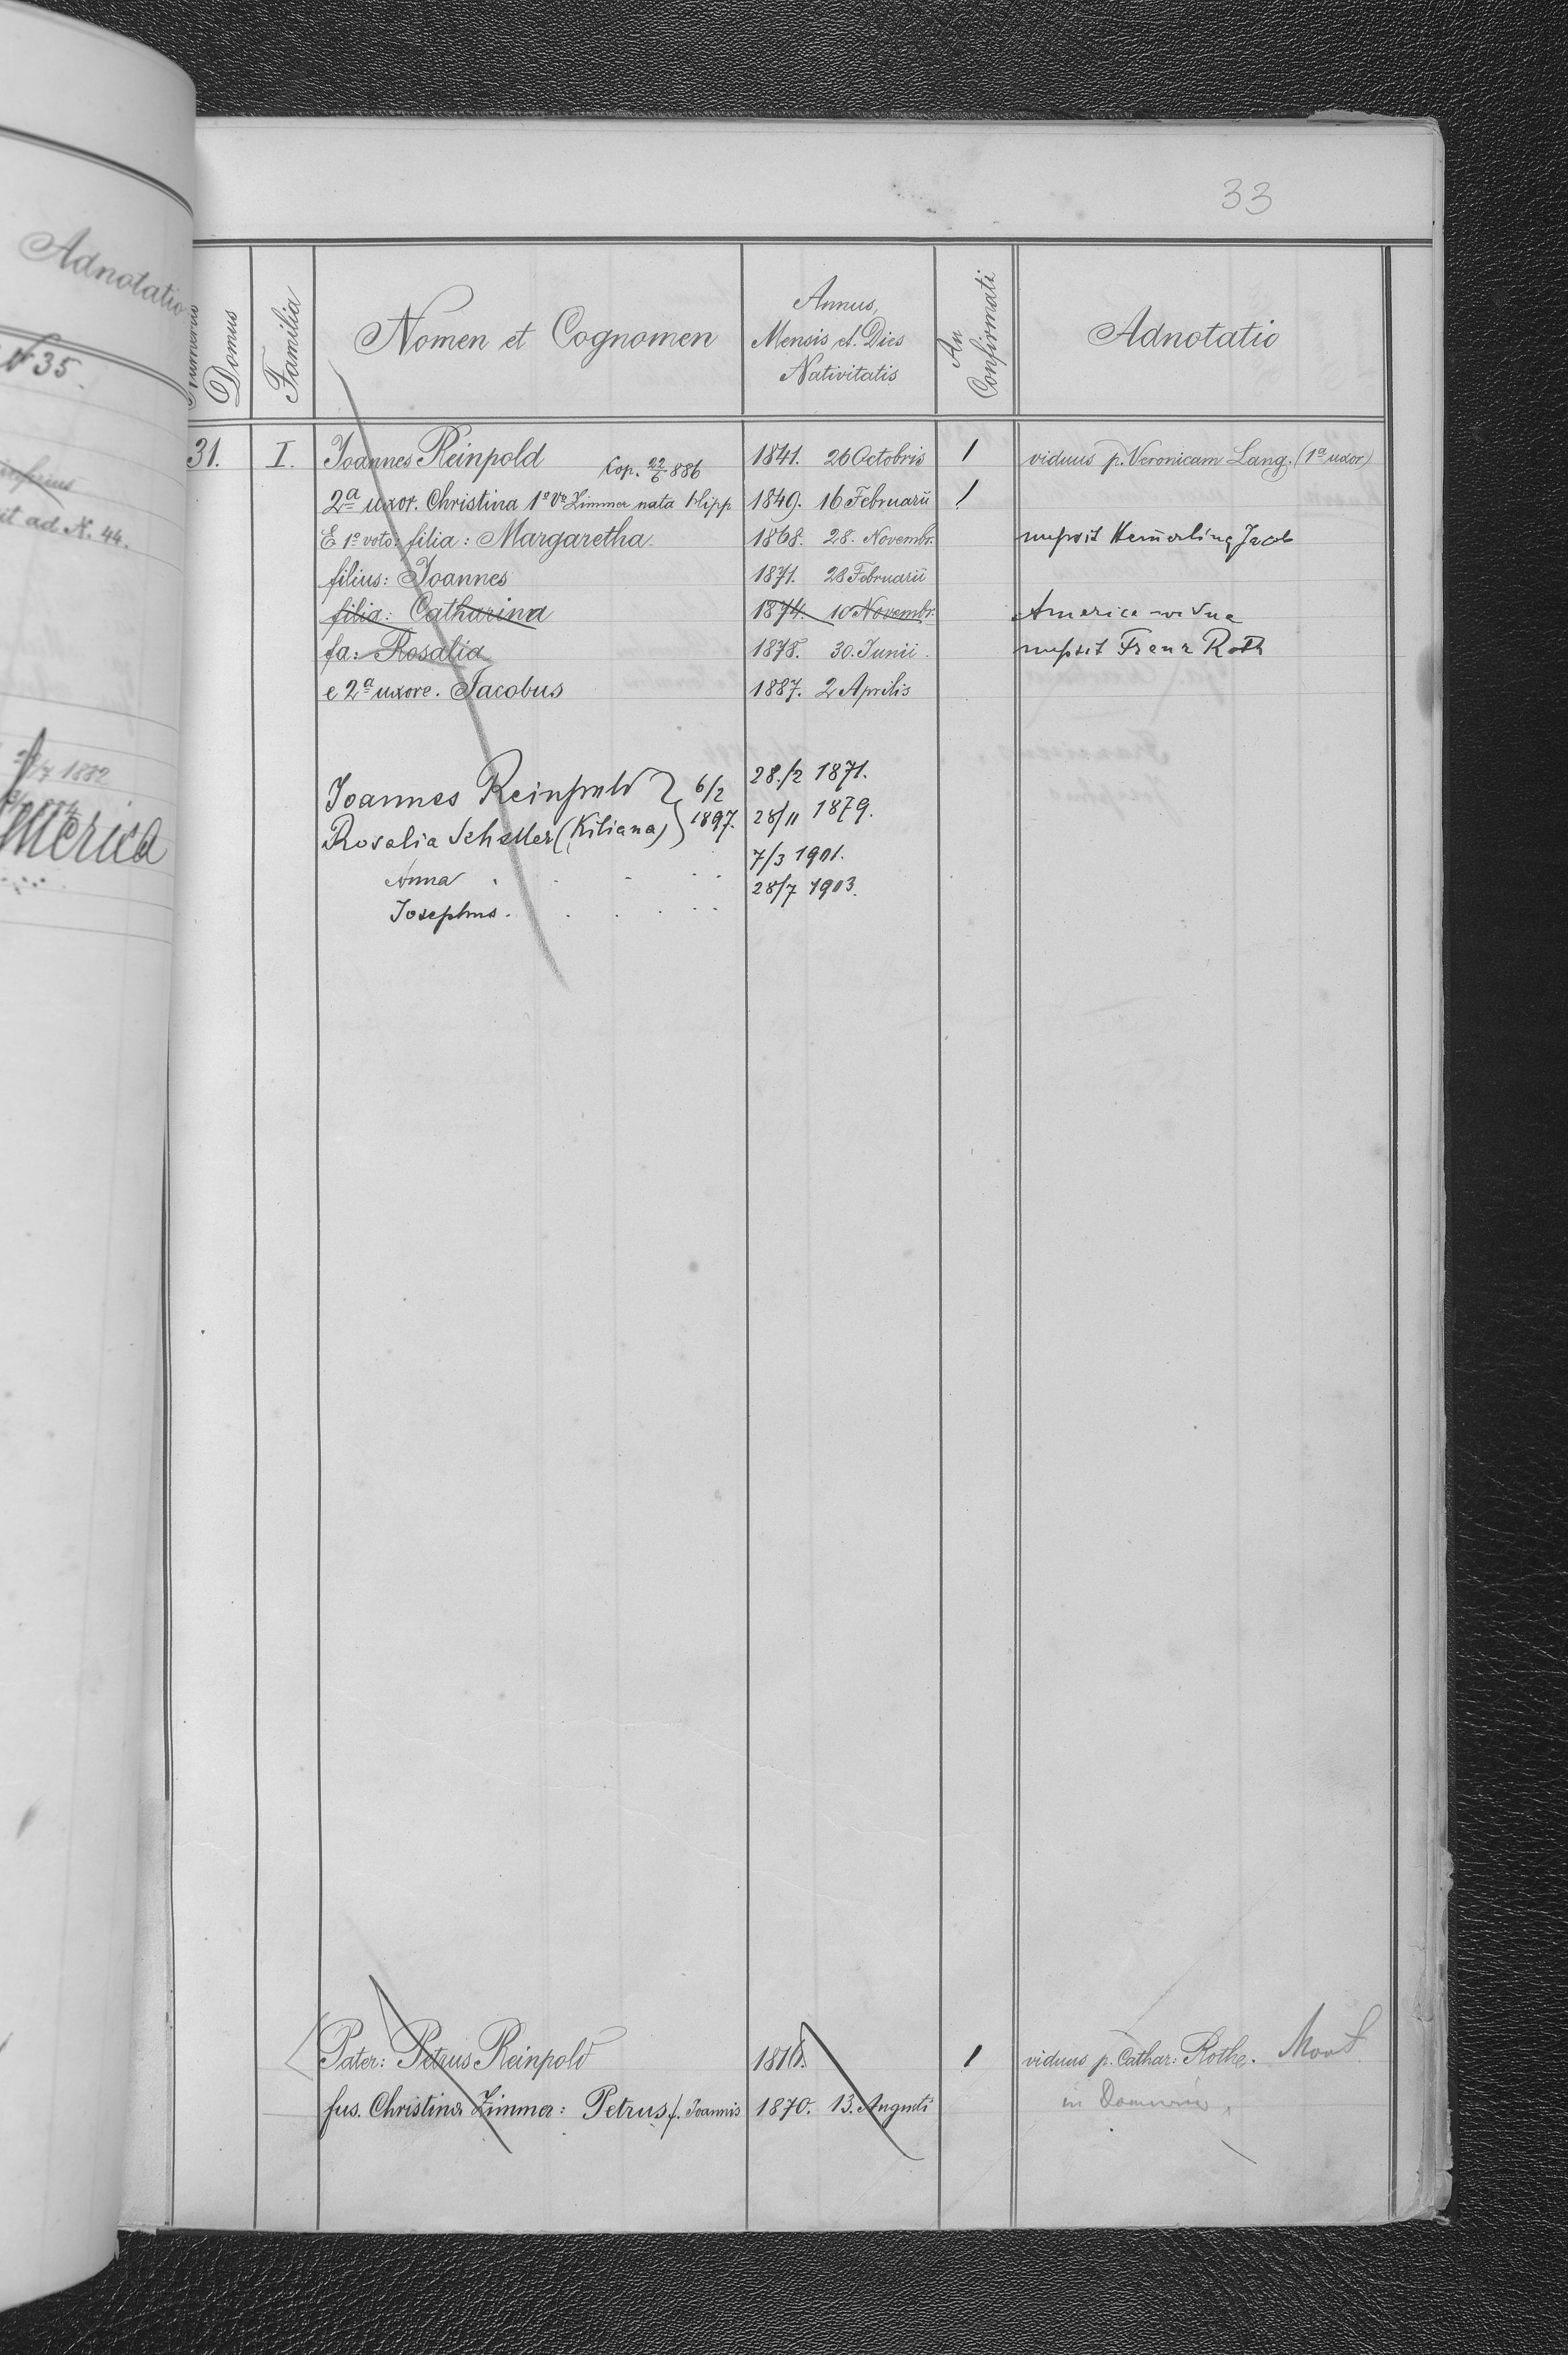 Adnotatio
N 35.
inferius
it ad N. 44.
/7 1882
America
33
Numerus Domus
Familia
Nomen et Cognomen
Annus, Mensis et Dies Nativitatis
An Confirmati
Adnotatio
31. I. Joannes Reinpold Cop. 22/6 886 1841. 26 Octobris 1 viduus p. Veronicam Lang. (1ª uxor)
2ª uxor. Christina 1º Vº Zimmer nata Hipp 1849. 16 Februarii 1
E 1º voto: filia: Margaretha 1868. 28. Novembr. nupsit Hem̄erling Jacob
filius: Joannes 1871. 28 Februarii
filia: Catharina 1874. 10 Novembr. America vidua
fa: Rosalia 1878. 30. Junii. nupsit Franz Roth
e 2ª uxore. Jacobus 1887. 2 Aprilis
Joannes Reinpold } 6/2 28./2 1871.
Rosalia Scheller (Kiliana) } 1897. 28/11 1879.
Anna 7/3 1901.
Josephus. 28/7 1903.
Pater: Petrus Reinpold 1816. 1 viduus p. Cathar: Rothg. Mort
fus. Christina Zimmer: Petrus f. Joannis 1870. 13. Augusti in